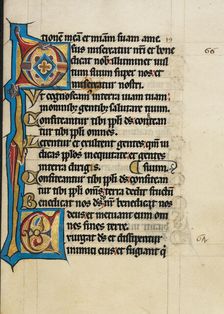 tione mea et miam suam ame
eus misereatur nri et bene
dicat nob illuminet vul
tum suum super nos et
misereatur nostri.
Ut cognoscam in terra viam tuam
in omnib; gentib; salutare tuum.
Confiteantur tibi ppli ds confi
teantur tibi ppli omnes.
Letentur et exultent gentes qm iu
dicas pplos in equitate et gentes
in terra dirigis. suum
Confiteantur tibi ppli ds confitean
tur tibi ppli oms terra dedit fructu
enedicat nos ds ds nr benedicat nos
deus et metuant eum om
nes fines terre.
Exurgat ds et dissipentur
inimici eius et fugiant q
66